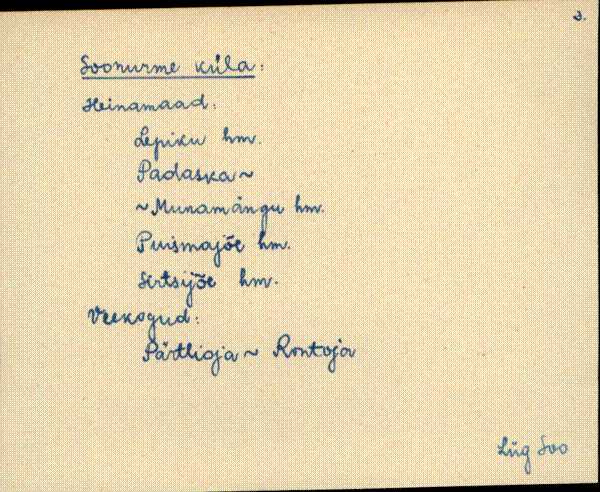 3.
Soonurme küla:
Heinamaad:
Lepiku hm.
Padaska ~
~ Munamängu hm.
Puismajõe hm.
Sirtsijõe hm.
Veekogud:
Pärtlioja ~ Rontoja
Lüg Soo